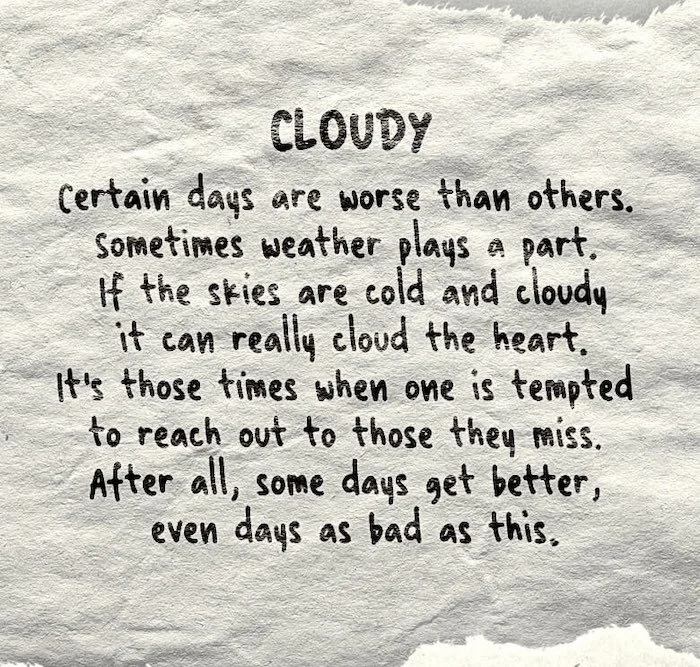 CLOUDY
Certain days are worse than others.
Sometimes weather plays a part.
If the skies are cold and cloudy
it can really cloud the heart.
It's those times when one is tempted
to reach out to those they miss.
After all, some days get better,
even days as bad as this.